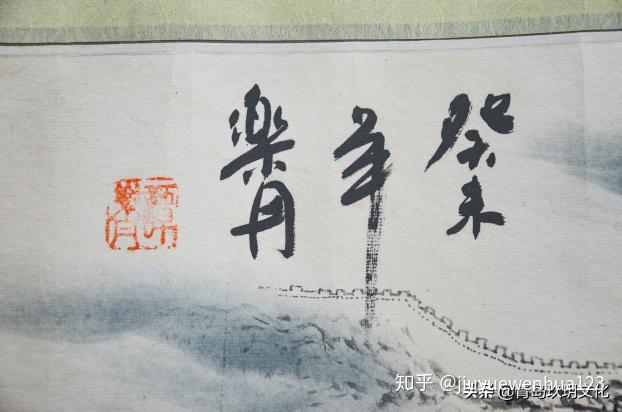 癸未
年
樂丹
知乎 @jiuyuewenhua123
头条 @青岛玖玥文化